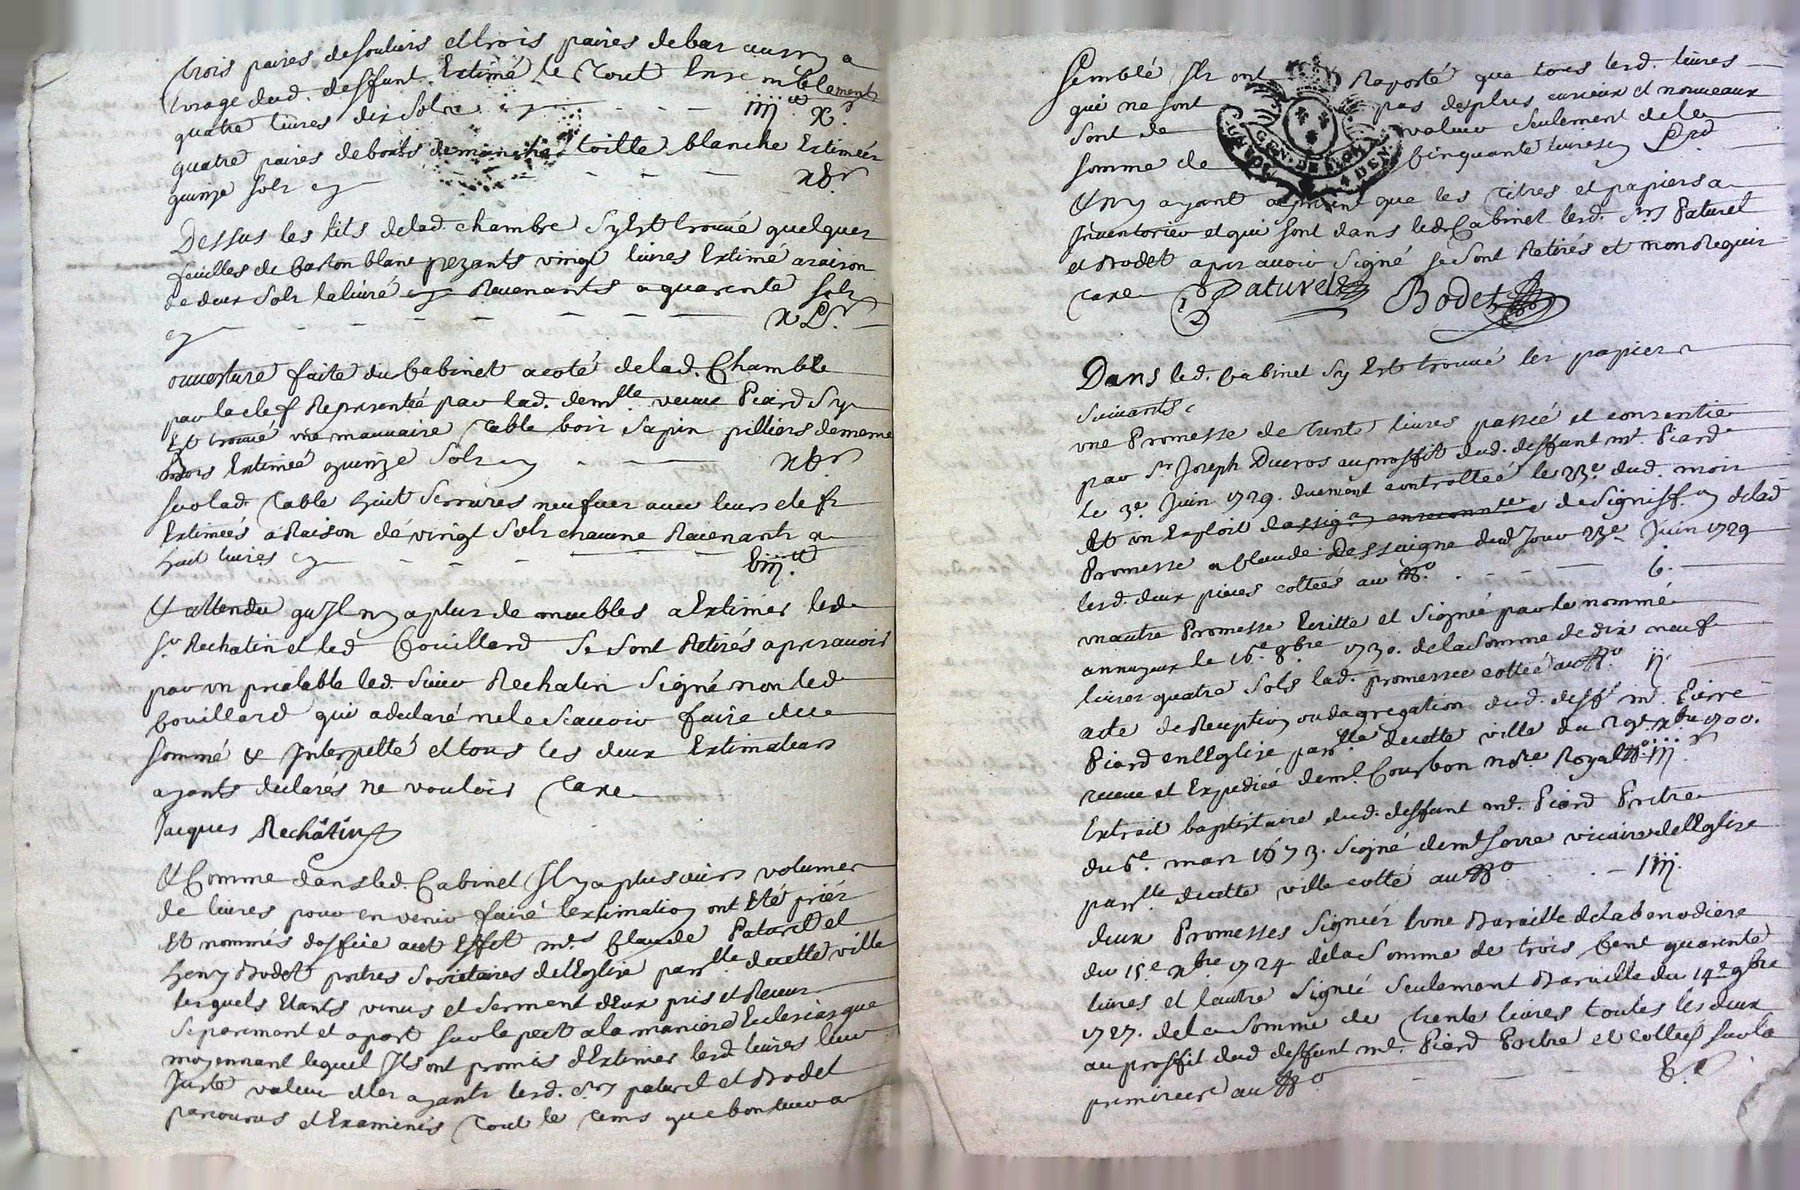 trois paires de souliers et trois paires de bas aussy a
lusage dud. deffunt Extimé le tout Ensemblement
quatre livres dix Sols iiij.lt x.s
quatre paires de bouts de manche toille blanche Extimées
quinze sols xv.s
Dessus les lits de lad. chambre Sy Est trouvé quelques
feuilles de Carton blanc pezants vingt livres Extimé a raison
de deux Sols la livre Revenants a quarente sols
xL.s
ouverture faite du Cabinet a coté de lad. Chambre
par la clef Representée par lad. demlle veuve Piard Sy
Est trouvé une mauvaise Table bois Sapin pilliers de meme
Bois Extimée quinze Sols xv.s
sur lad. Table huit Serrures neufves avec leurs clefs
Extimées a Raison de vingt Sols chacune Revenants a
huit livres viij.lt
Et attendu qu'Il ny a plus de meubles a Extimer led.
Sr. Rechatin et led. Couillard Se Sont Retirés apres avoir
par un prealable led. Sieur Rechatin Signé non led.
Couillard qui a declaré ne le Scavoir faire de ce
Sommé & Interpellé et tous les deux Extimateurs
ayants declarés ne vouloir Taxe
Jacques Rechâtin
Et Comme dans led. Cabinet Il y a plusieurs volumes
de livres pour en venir faire lextimation ont Eté priés
Et nommés doffice a cet Effet mrs. Claude Paturel et
henry Bodet pretres Societaires de l'Eglise parlle de cette ville
lesquels Etants venus et Serment d'Eux pris et Receu
Separement et apart sur le pect a la maniere Eclesiastique
moyennant lequel Ils ont promis d'Extimer lesd. livres leur
Juste valeur et les ayants lesd. Srs. paturel et Bodet
parcourus et Examinés Tout le tems que bon leur a
Semblé Ils ont Raporté que tous lesd. livres
qui ne sont pas des plus curieux et nouveaux
Sont de valeur Seulement de la
Somme de Cinquante livres L.lt
GEN. DE LION
4 DEN.
Et ny ayant a present que les Titres et papiers a
Inventorier et qui sont dans led. Cabinet lesd. Srs. Paturel
et Bodet apres avoir Signé Se Sont Retirés et mon Requis
Taxe Paturel Bodet
Dans led. Cabinet Sy Est trouvé les papiers
Suivants.
une Promesse de Trente livres passée et consentie
par Sr. Joseph Ducros au proffit dud. deffunt mr. Piard
le 3e. Juin 1729. duement controllée le 23e. dud. mois
Et un Exploit de Signiff.on de lad.
Promesse a Claude Dessaigne dud. Jour 23e. Juin 1729
lesd. deux pieces cottées au No. i.
un autre Promesse Ecritte et Signée par le nommé
annuyeux le 16e. 8bre 1730. de la Somme de dix neuf
livres quatre Sols lad. promesse cottée au No. ij.
acte de Reception ou dagregation dud. deff. mr. Pierre
Piard en lEglise parlle de cette ville du 29e. xbre 1700.
receue et Expediée de mr. Courbon no.re Royal No. iij.
Extrait baptistaire dud. deffunt mr. Piard Pretre
du 6e. mars 1673. Signé de mr. Sorre vicaire de lEglise
parlle de cette ville cotté au No iiij.
deux Promesses Signées l'une Baraille de la benodiere
du 15e xbre 1724 de la Somme de trois Cent quarente
livres et l'autre Signée Seulement Baraille du 14e 9bre
1727. de la Somme de Trente livres toutes les deux
au proffit dud. deffunt mr. Piard Pretre et cottées sur la
premiere au No v.